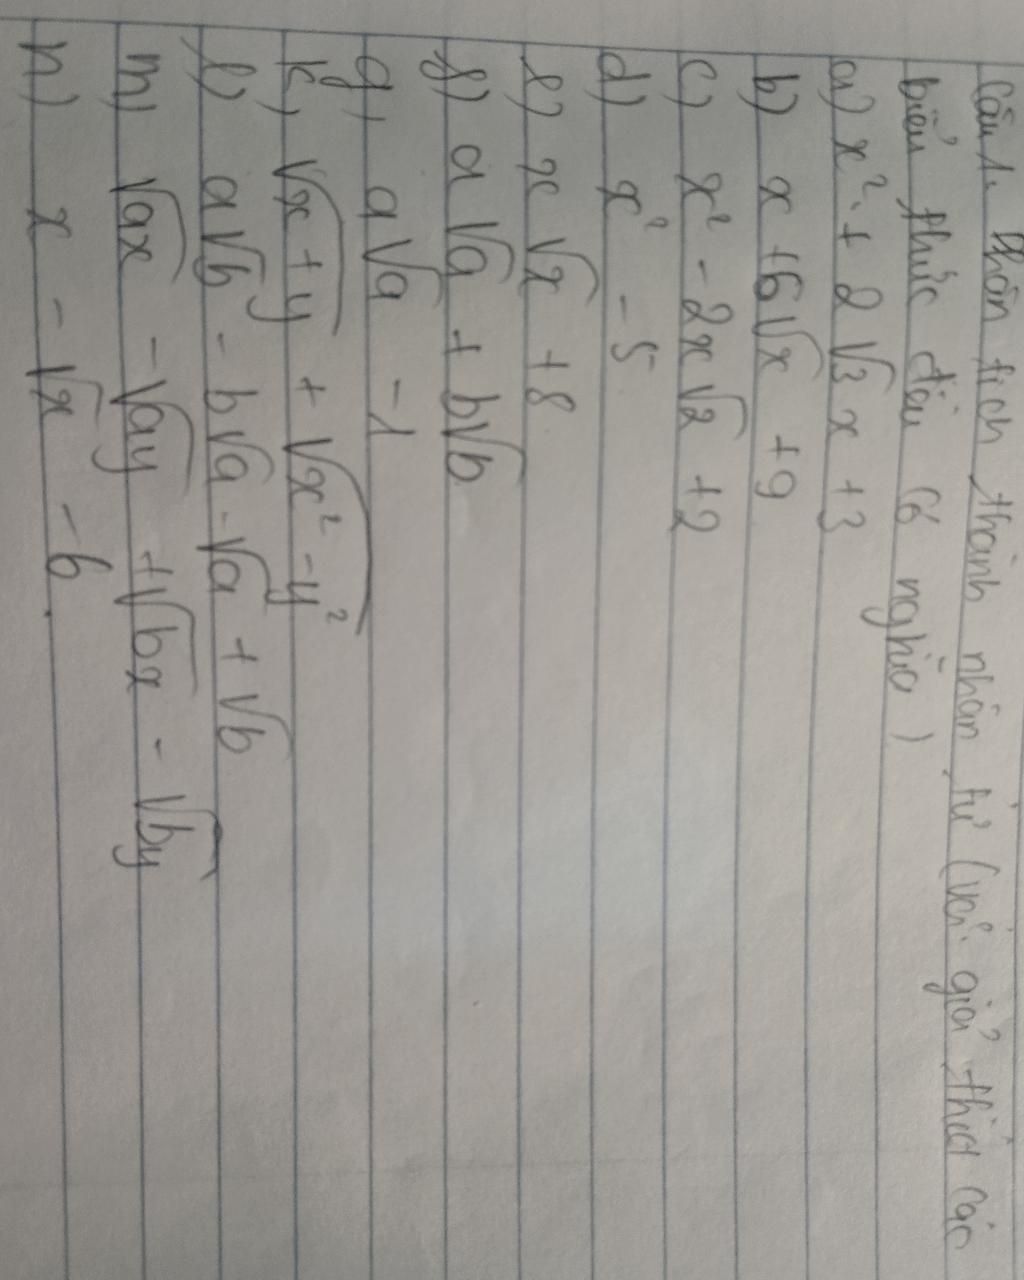 Câu 1. Phân tích thành nhân tử (với giả thiết các
biểu thức đều có nghĩa)
a) x² + 2√3 x + 3
b) x + 6√x + 9
c) x² - 2x√2 + 2
d) x² - 5
e) x√x + 8
f) a√a + b√b
g) a√a - 1
k) √x+y + √x²-y²
l) a√b - b√a - √a + √b
m) √ax - √ay + √bx - √by
n) x - √x - 6.